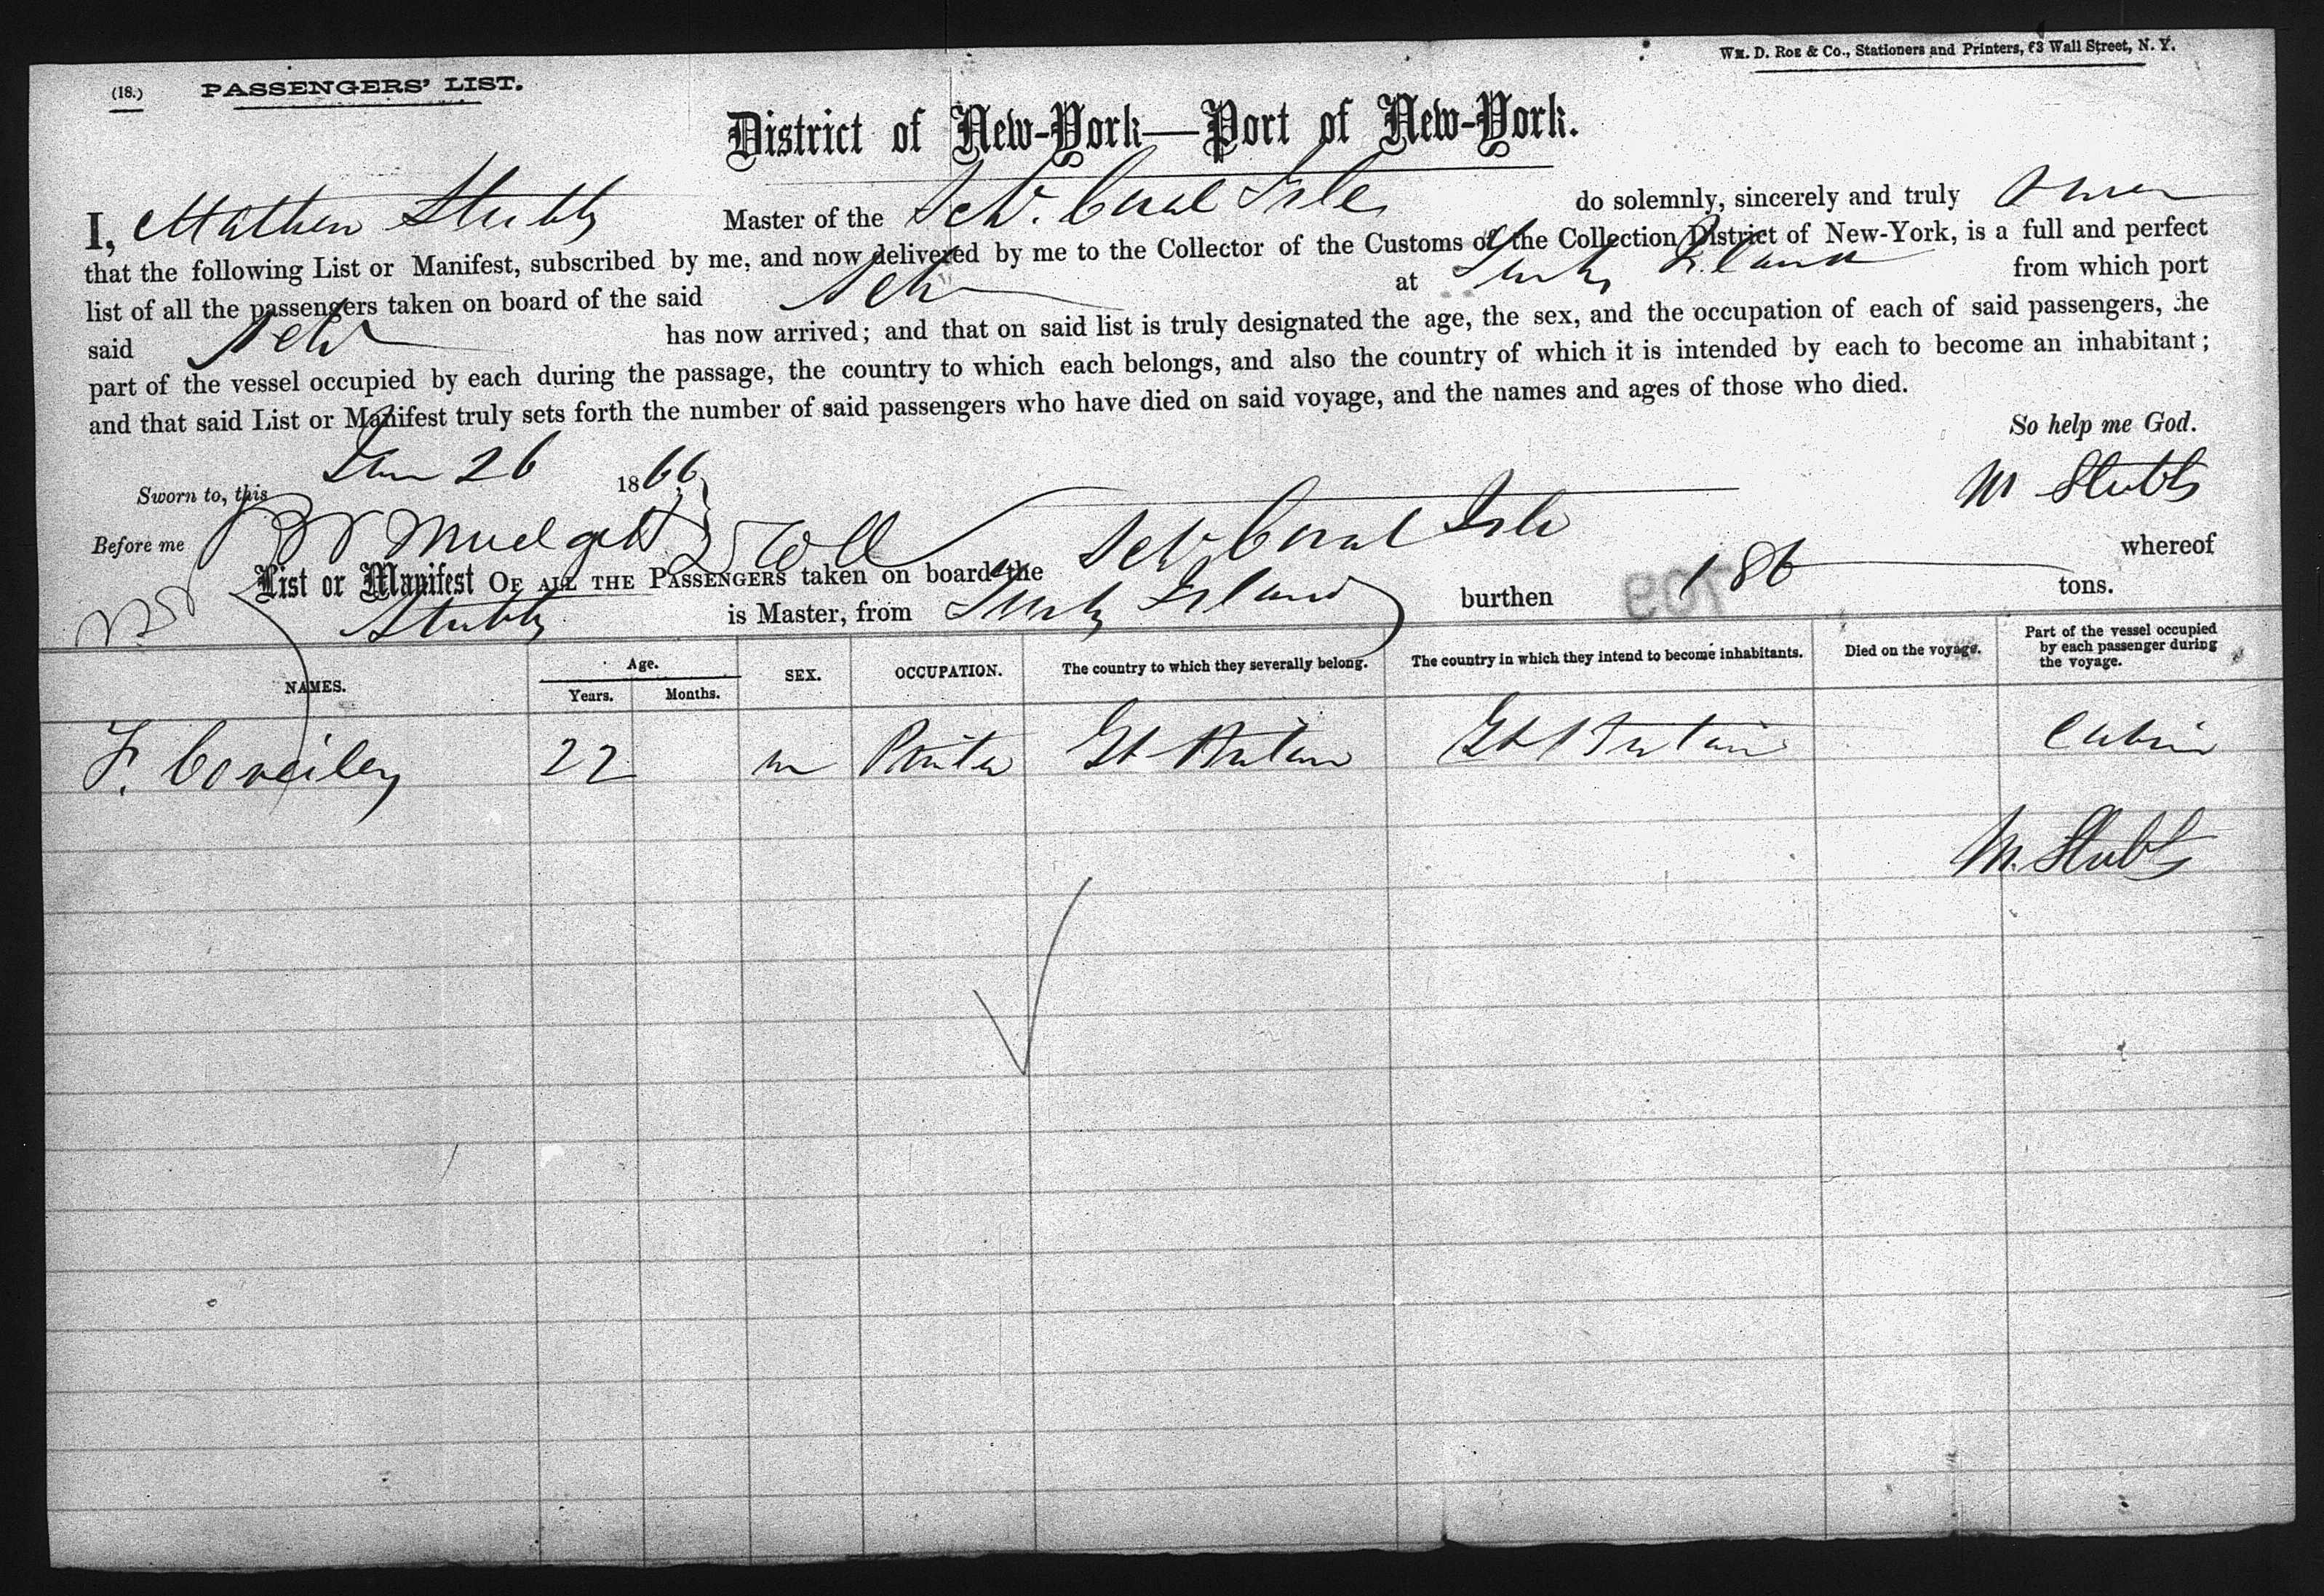 (18.) PASSENGERS' LIST.
Wm. D. Roe & Co., Stationers and Printers, 63 Wall Street, N. Y.
District of New-York—Port of New-York.
I, Mathew Stubbs Master of the Schr. Coral Isle do solemnly, sincerely and truly swear
that the following List or Manifest, subscribed by me, and now delivered by me to the Collector of the Customs of the Collection District of New-York, is a full and perfect
list of all the passengers taken on board of the said Schr at Turks Island from which port
said Schr has now arrived; and that on said list is truly designated the age, the sex, and the occupation of each of said passengers, the
part of the vessel occupied by each during the passage, the country to which each belongs, and also the country of which it is intended by each to become an inhabitant;
and that said List or Manifest truly sets forth the number of said passengers who have died on said voyage, and the names and ages of those who died.
So help me God.
Sworn to, this Jan 26 1866
M Stubbs
Before me Mudgett
List or Manifest OF ALL THE PASSENGERS taken on board the Schr Coral Isle whereof
Stubbs is Master, from Turks Island burthen 186 tons.
NAMES. Age. Years. Months. SEX. OCCUPATION. The country to which they severally belong. The country in which they intend to become inhabitants. Died on the voyage. Part of the vessel occupied by each passenger during the voyage.
F. 22 m Gt Britain Gt Britain Cabin
M. Stubbs